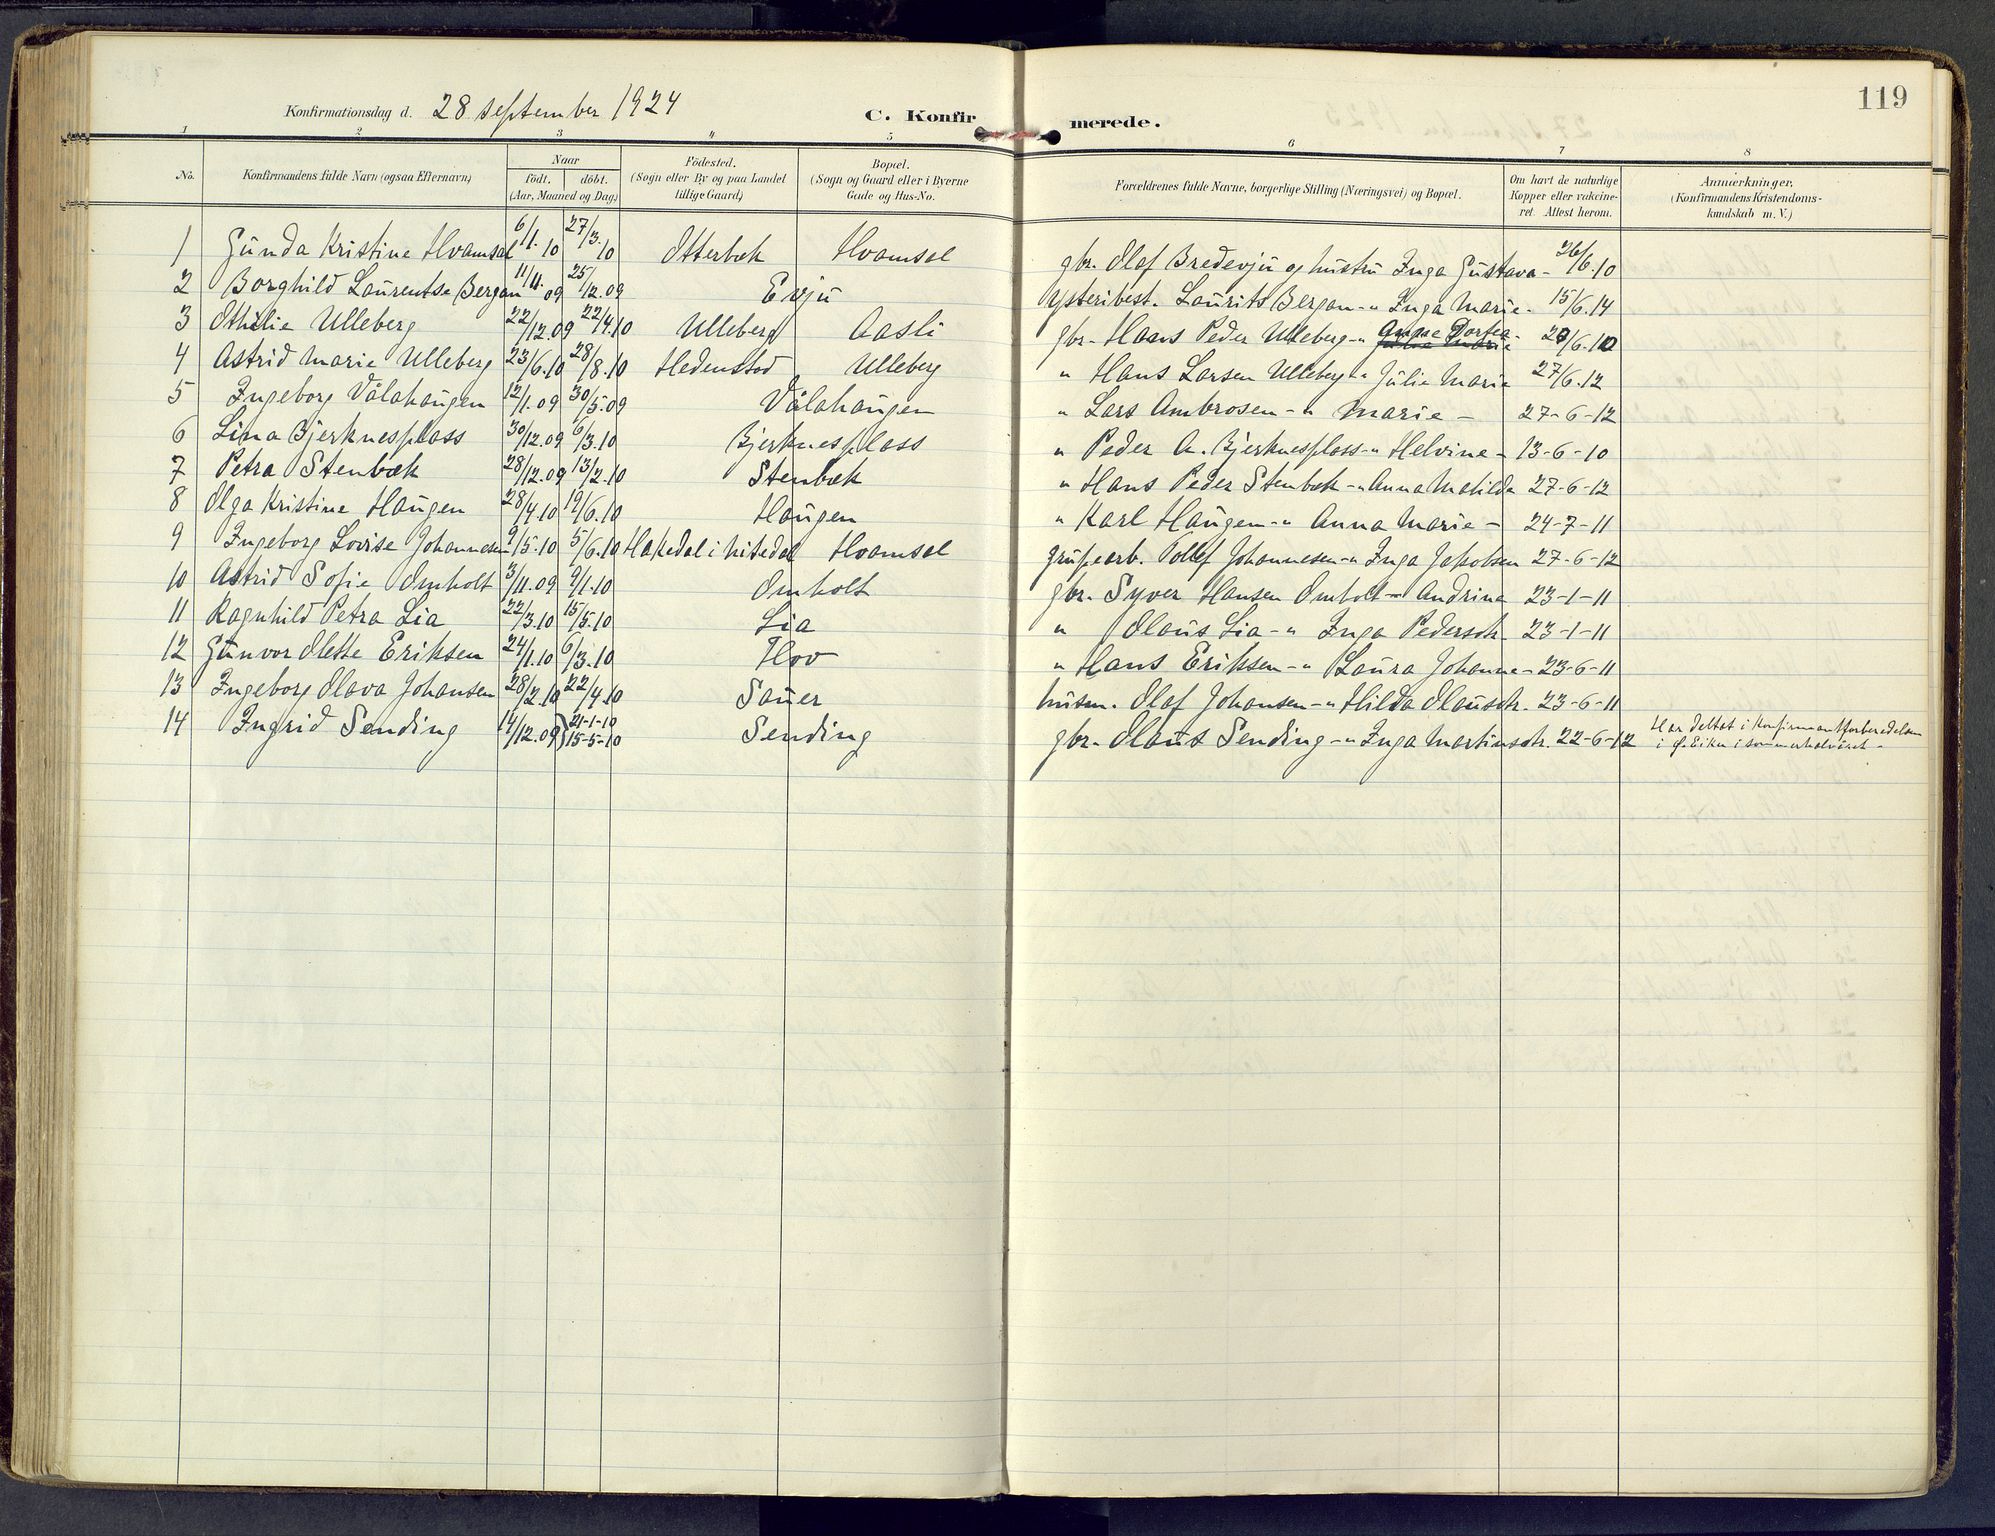 119
Konfirmationsdag d. 28 september 1924 C. Konfirmerede.
1 2 3 4 5 6 7 8
No. Konfirmandens fulde Navn (ogsaa Efternavn) Naar födt. döbt. (Aar, Maaned og Dag) Födested. (Sogn eller By og paa Landet tillige Gaard) Bopæl. (Sogn og Gaard eller i Byerne Gade og Hus-No. Forældrenes fulde Navne, borgerlige Stilling (Næringsvei) og Bopæl. Om havt de naturlige Kopper eller vakcineret. Attest herom. Anmærkninger. (Konfirmandens Kristendomskundskab m. V.)
1 Gunda Kristine Hvamsal 6/1.10 27/3.10 Otterbæk Hvamsal gbr. Olaf Bredevju og hustru Inga Gustava - 26/6.10
2 Borghild Laurentse Bergan 11/11.09 25/12.09 Evju ysteribest. Laurits Bergan - " Inga Marie - 15/6.14
3 Othilie Ulleberg 22/12.09 22/4.10 Ulleberg Aasli gbr. Hans Peder Ulleberg - " Anne Dortea - /6.
4 Astrid Marie Ulleberg 23/6.10 28/8.10 Hedenstad Ulleberg " Hans Larsen Ulleberg " Julie Marie 27/6.12
5 Ingeborg Vålahaugen 12/1.09 30/5.09 Vålahaugen " Lars Ambrosen - " Marie - 27-6-12
6 Lina Bjerknesplass 30/12.09 6/3.10 Bjerknesplass " Peder A. Bjerknesplass - " Helvine - 13-6-10
7 Petra Stenbæk 28/12.09 13/2.10 Stenbæk " Hans Peder Stenbæk - " Anna Matilda 27-6-12
8 Olga Kristine Haugen 28/4.10 19/6.10 Haugen " Karl Haugen - " Anna Marie - 24-7-11
9 Ingeborg Lovise Johannesen 9/5.10 5/6.10 Hakedal i Nitedal Hvamsal grubearb. Tollef Johannesen - " Inga Jakobsen 27-6-12
10 Astrid Sofie Omholt 3/11.09 9/1.10 Omholt gbr. Syver Hansen Omholt - Andrina 23-1-11
11 Ragnhild Petra Lia 22/3.10 15/5.10 Lia " Olaus Lia - " Inga Pedersdtr. 23-1-11
12 Gunvor Olette Eriksen 24/1.10 6/3.10 Hov " Hans Eriksen - " Laura Johanne - 23-6-11
13 Ingeborg Olava Johansen 28/2.10 22/4.10 Sauer husm. Olaf Johansen - " Hilda Olausdtr. 23-6-11
14 Ingrid Sending 14/12.09 } 21-1-10 15-5-10 Sending gbr. Olaus Sending - " Inga Martinsdtr. 22-6-12 Har deltat i konfirmantforberedelsen
i Ø. Eiker i sommerhalvåret -